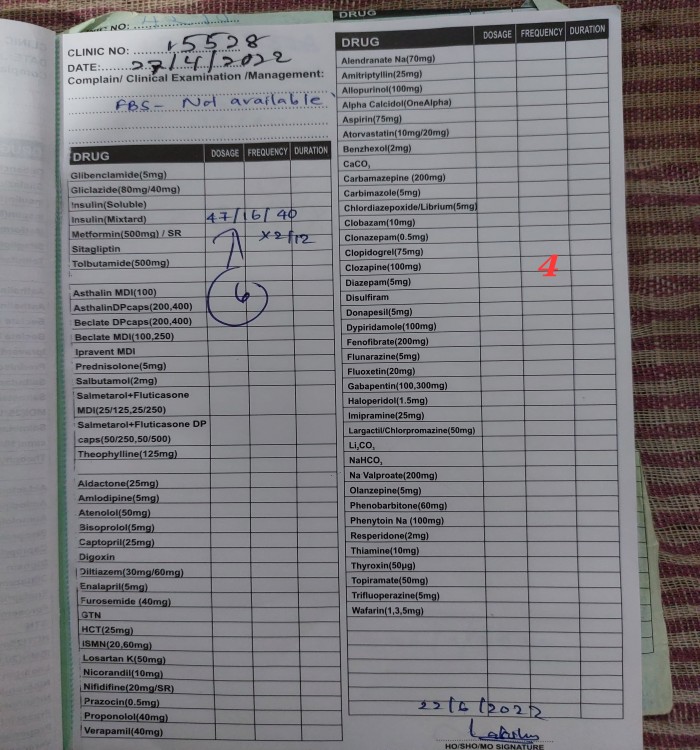 NO:
DRUG
CLINIC NO: 15528
DATE: 27/4/2022
Complain/ Clinical Examination /Management:
FBS- Not available
DRUG DOSAGE FREQUENCY DURATION
Glibenclamide(5mg)
Gliclazide(80mg/40mg)
Insulin(Soluble)
Insulin(Mixtard) 47/16/40
Metformin(500mg) / SR x 2/12
Sitagliptin
Tolbutamide(500mg)
6
Asthalin MDI(100)
AsthalinDPcaps(200,400)
Beclate DPcaps(200,400)
Beclate MDI(100,250)
Ipravent MDI
Prednisolone(5mg)
Salbutamol(2mg)
Salmetarol+Fluticasone
MDI(25/125,25/250)
Salmetarol+Fluticasone DP
caps(50/250,50/500)
Theophylline(125mg)
Aldactone(25mg)
Amlodipine(5mg)
Atenolol(50mg)
Bisoprolol(5mg)
Captopril(25mg)
Digoxin
Diltiazem(30mg/60mg)
Enalapril(5mg)
Furosemide (40mg)
GTN
HCT(25mg)
ISMN(20,60mg)
Losartan K(50mg)
Nicorandil(10mg)
Nifidifine(20mg/SR)
Prazocin(0.5mg)
Proponolol(40mg)
Verapamil(40mg)
DRUG DOSAGE FREQUENCY DURATION
Alendranate Na(70mg)
Amitriptyllin(25mg)
Allopurinol(100mg)
Alpha Calcidol(OneAlpha)
Aspirin(75mg)
Atorvastatin(10mg/20mg)
Benzhexol(2mg)
CaCO,
Carbamazepine (200mg)
Carbimazole(5mg)
Chlordiazepoxide/Librium(5mg)
Clobazam(10mg)
Clonazepam(0.5mg)
Clopidogrel(75mg)
Clozapine(100mg) 4
Diazepam(5mg)
Disulfiram
Donapesil(5mg)
Dypiridamole(100mg)
Fenofibrate(200mg)
Flunarazine(5mg)
Fluoxetin(20mg)
Gabapentin(100,300mg)
Haloperidol(1.5mg)
Imipramine(25mg)
Largactil/Chlorpromazine(50mg)
Li,CO,
NaHCO,
Na Valproate(200mg)
Olanzepine(5mg)
Phenobarbitone(60mg)
Phenytoin Na (100mg)
Resperidone(2mg)
Thiamine(10mg)
Thyroxin(50µg)
Topiramate(50mg)
Trifluoperazine(5mg)
Wafarin(1,3,5mg)
22/6/2022
HO/SHO/MO SIGNATURE